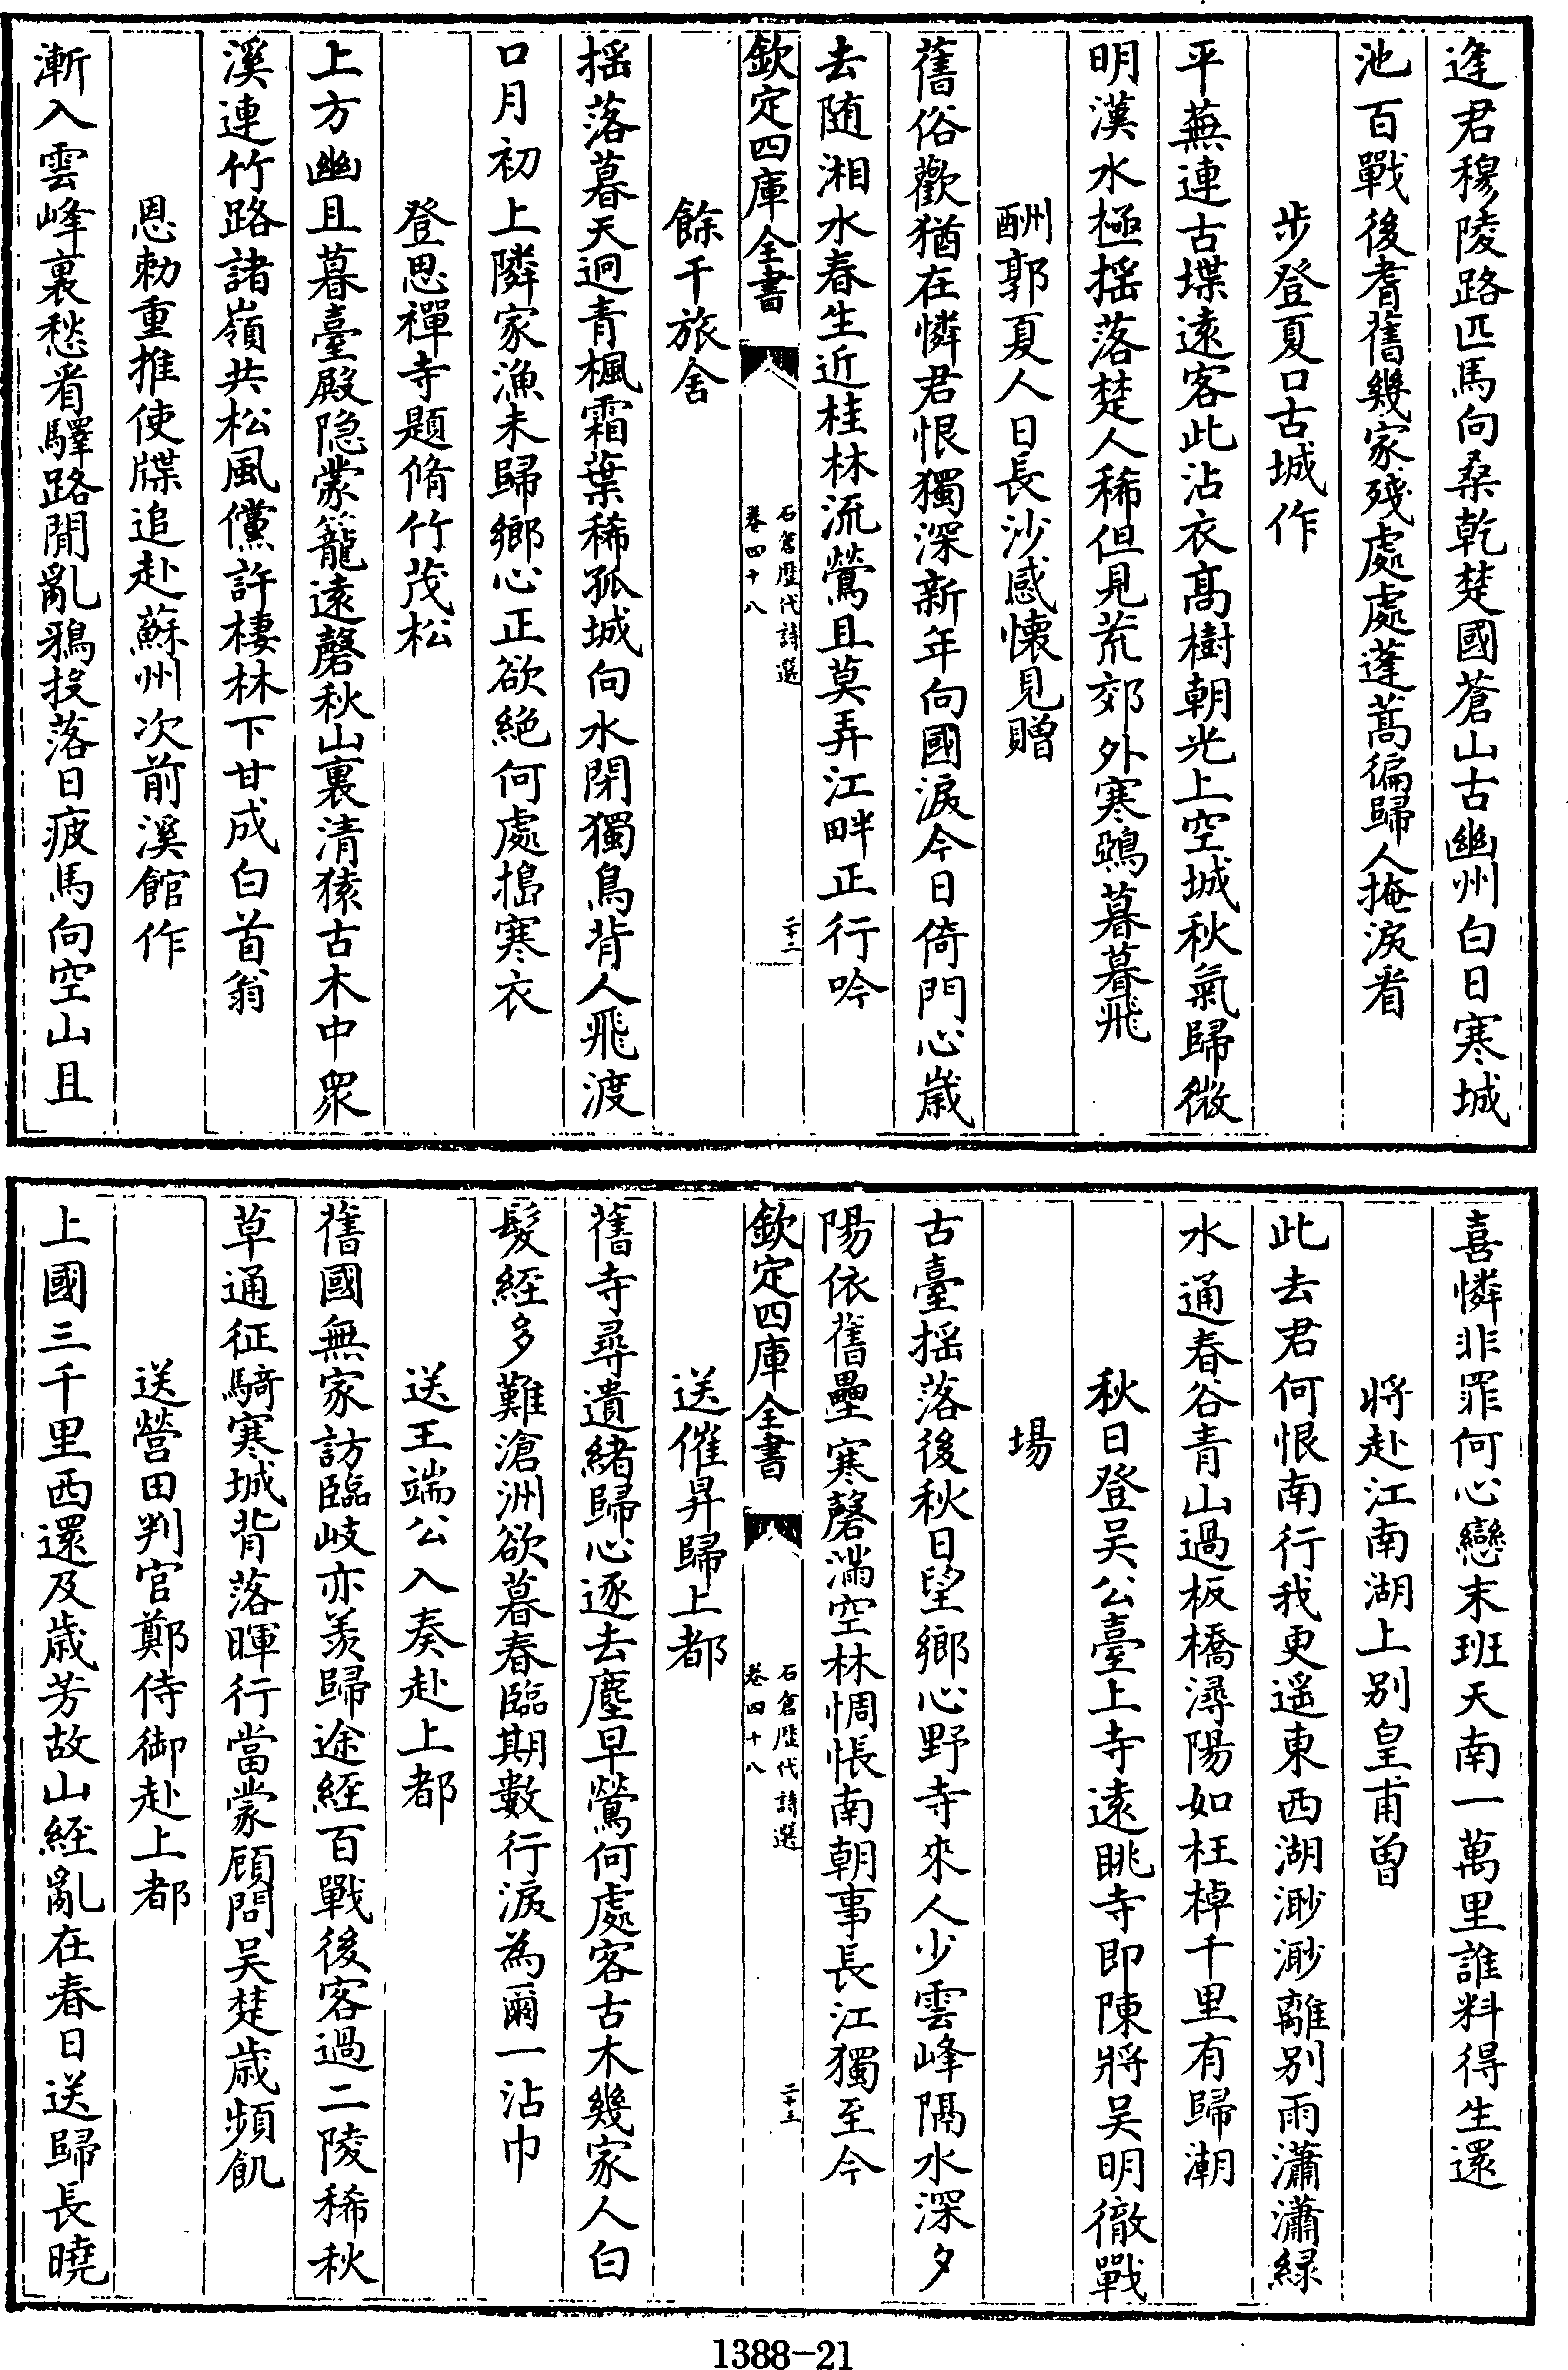 逢君穆陵路匹馬向桑乾楚國蒼山古幽州白日寒城
池百戰後耆舊幾家殘處處蓬蒿徧歸人掩淚看
步登夏口古城作
平蕪連古堞遠客此沾衣髙樹朝光上空城秋氣歸微
明漢水極揺落楚人稀但見荒郊外寒鵶暮暮飛
酬郭夏人日長沙感懷見贈
舊俗歡猶在憐君恨獨深新年向國淚今日倚門心歲
去隨湘水春生近桂林流鶯且莫弄江畔正行吟
欽定四庫全書
石倉歴代詩選
卷四十八
二十二
餘干旅舍
揺落暮天迥青楓霜葉稀孤城向水閉獨鳥背人飛渡
口月初上隣家漁未歸鄉心正欲絶何處搗寒衣
登思禪寺題脩竹茂松
上方幽且暮臺殿隐蒙籠遠磬秋山裏清猿古木中衆
溪連竹路諸嶺共松風儻許棲林下甘成白首翁
恩勅重推使牒追赴蘇州次前溪館作
漸入雲峰裏愁看驛路閒亂鴉投落日疲馬向空山且
喜憐非罪何心戀末班天南一萬里誰料得生還
將赴江南湖上别皇甫曾
此去君何恨南行我更遥東西湖渺渺離别雨瀟瀟緑
水通春谷青山過板橋潯陽如枉棹千里有歸潮
秋日登吴公臺上寺遠眺寺即陳將吴明徹戰
場
古臺揺落後秋日望鄉心野寺來人少雲峰隔水深夕
陽依舊壘寒磬滿空林惆悵南朝事長江獨至今
欽定四庫全書
石倉歴代詩選
卷四十八
二十三
送催昇歸上都
舊寺尋遺緒歸心逐去塵早鶯何處客古木幾家人白
髮經多難滄洲欲暮春臨期數行淚為爾一沾巾
送王端公入奏赴上都
舊國無家訪臨岐亦羡歸途經百戰後客過二陵稀秋
草通征騎寒城背落暉行當蒙顧問吴楚歳頻飢
送營田判官鄭侍御赴上都
上國三千里西還及歳芳故山經亂在春日送歸長曉
1388-21